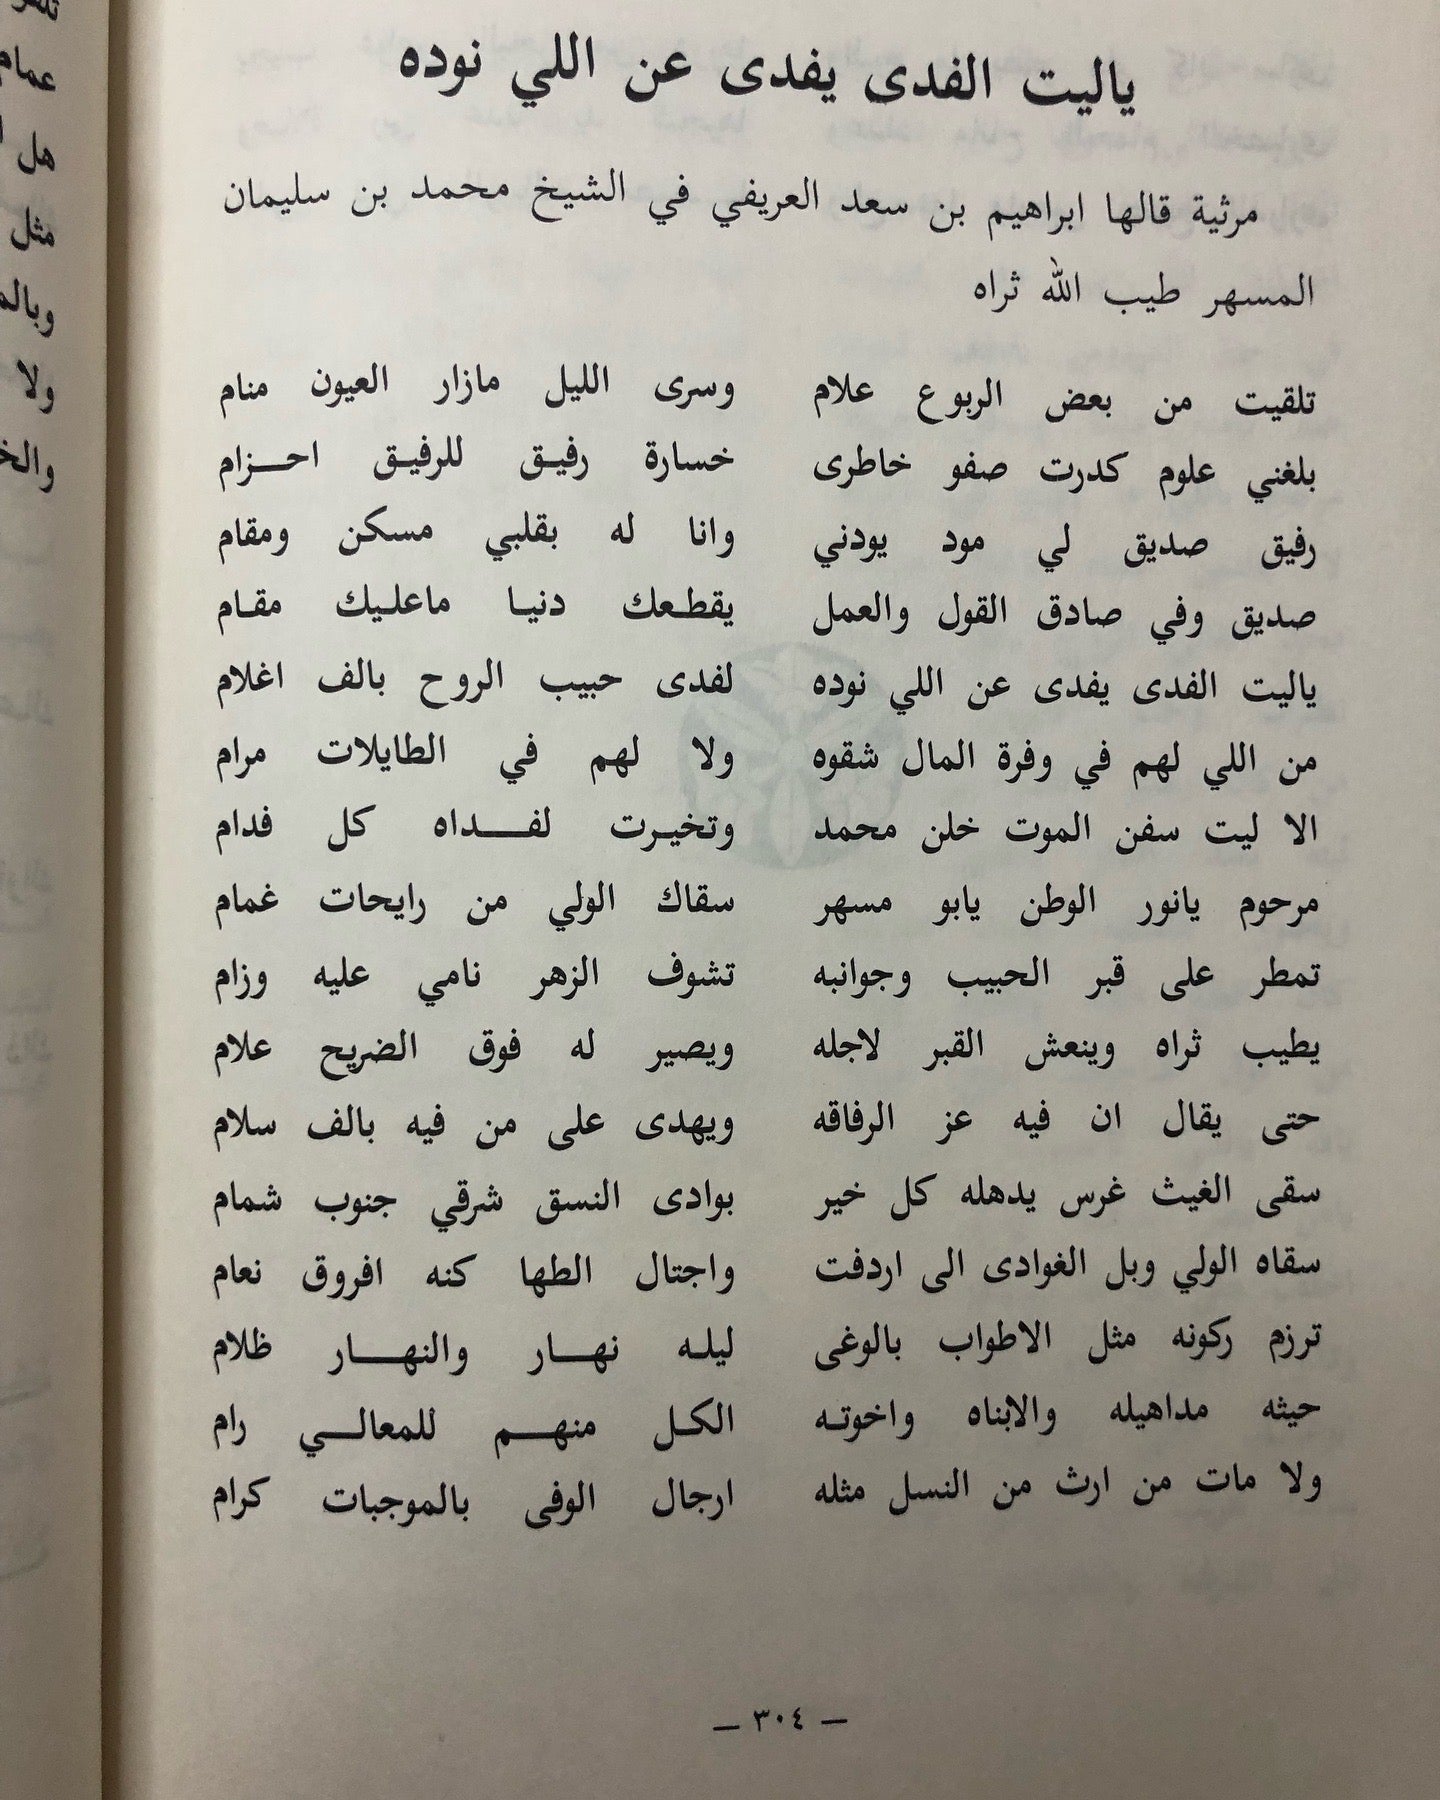 ياليت الفدى يفدى عن اللي نوده
مرثية قالها ابراهيم بن سعد العريفي في الشيخ محمد بن سليمان
المسهر طيب الله ثراه
تلقيت من بعض الربوع علام وسرى الليل مازار العيون منام
بلغني علوم كدرت صفو خاطرى خسارة رفيق للرفيق احزام
رفيق صديق لي مود يودني وانا له بقلبي مسكن ومقام
صديق وفي صادق القول والعمل يقطعك دنيا ماعليك مقام
ياليت الفدى يفدى عن اللي نوده لفدى حبيب الروح بالف اغلام
من اللي لهم في وفرة المال شقوه ولا لهم في الطايلات مرام
الا ليت سفن الموت خلن محمد وتخيرت لفداه كل فدام
مرحوم يانور الوطن يابو مسهر سقاك الولي من رايحات غمام
تمطر على قبر الحبيب وجوانبه تشوف الزهر نامي عليه وزام
يطيب ثراه وينعش القبر لاجله ويصير له فوق الضريح علام
حتى يقال ان فيه عز الرفاقه ويهدى على من فيه بالف سلام
سقى الغيث غرس يدهله كل خير بوادى النسق شرقي جنوب شمام
سقاه الولي وبل الغوادى الى اردفت واجتال الطها كنه افروق نعام
ترزم ركونه مثل الاطواب بالوغى ليله نهار والنهار ظلام
حيثه مداهيله والابناه واخوته الكل منهم للمعالي رام
ولا مات من ارث من النسل مثله ارجال الوفى بالموجبات كرام
— ٣٠٤ —
عمام
هل
مثل
ولا